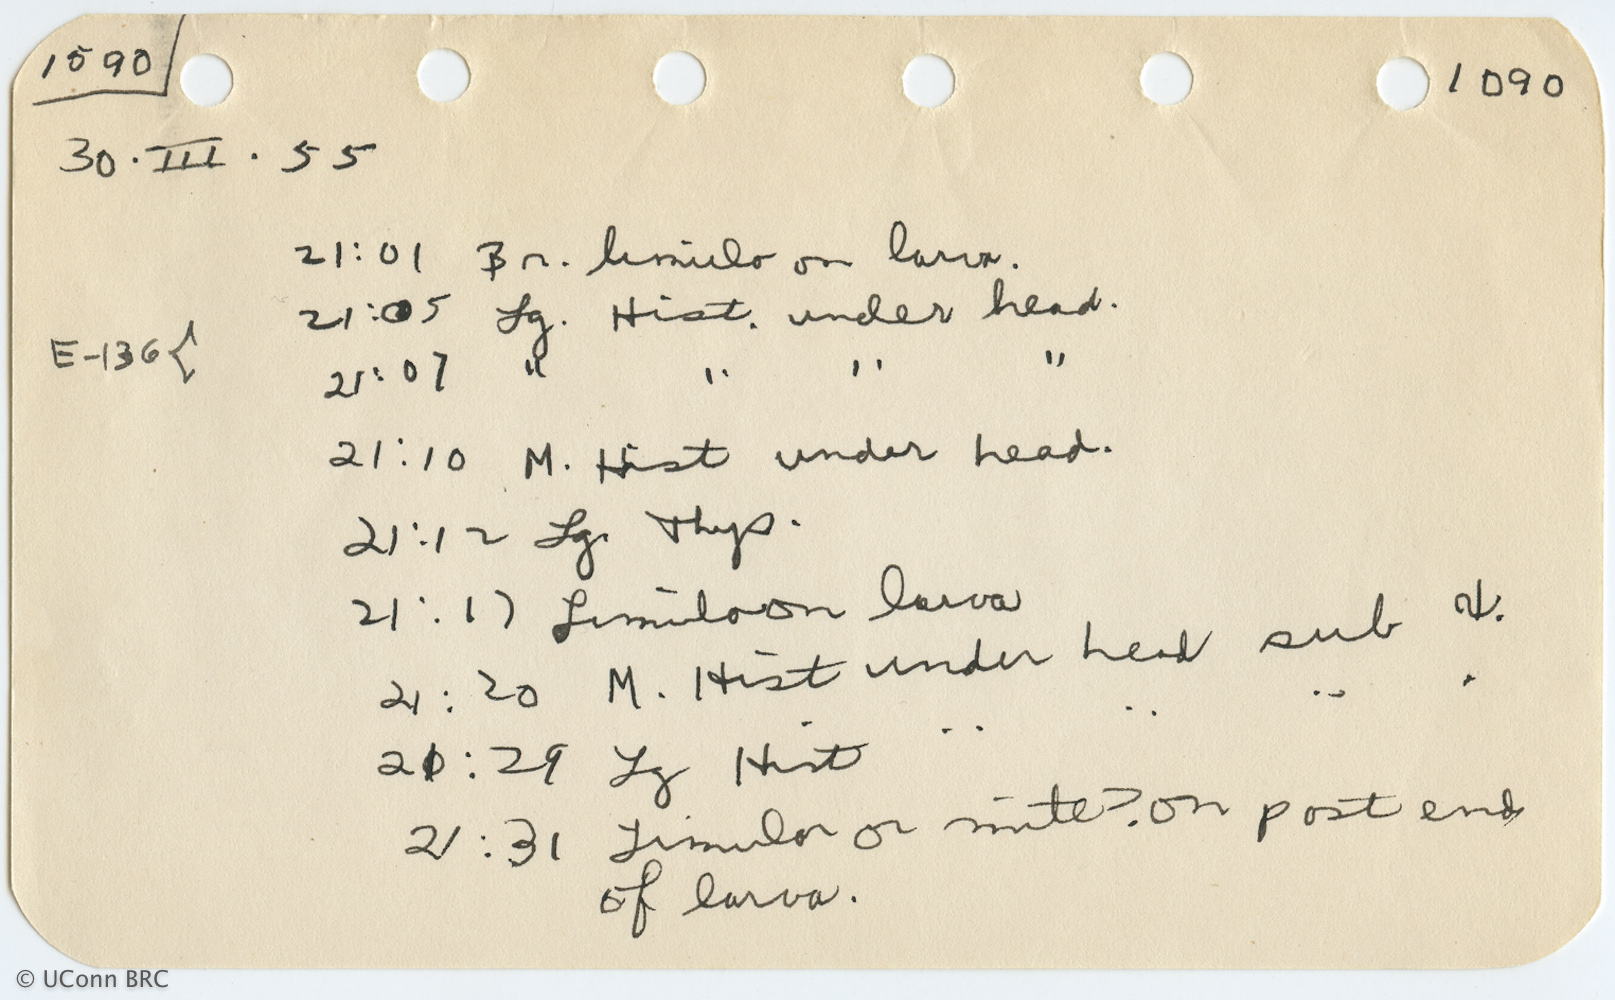 1590 1090
30·III·55
21:01 Br. limulo on larva.
21:05 Lg. Hist. under head.
E-136{
21:07 " " " "
21:10 M. Hist under head.
21:12 Lg. Thys.
21:17 Limulo on larva
21:20 M. Hist under head sub
21:29 Lg Hist " " " " "
21:31 Limulo or mite? on post end
of larva.
© UConn BRC